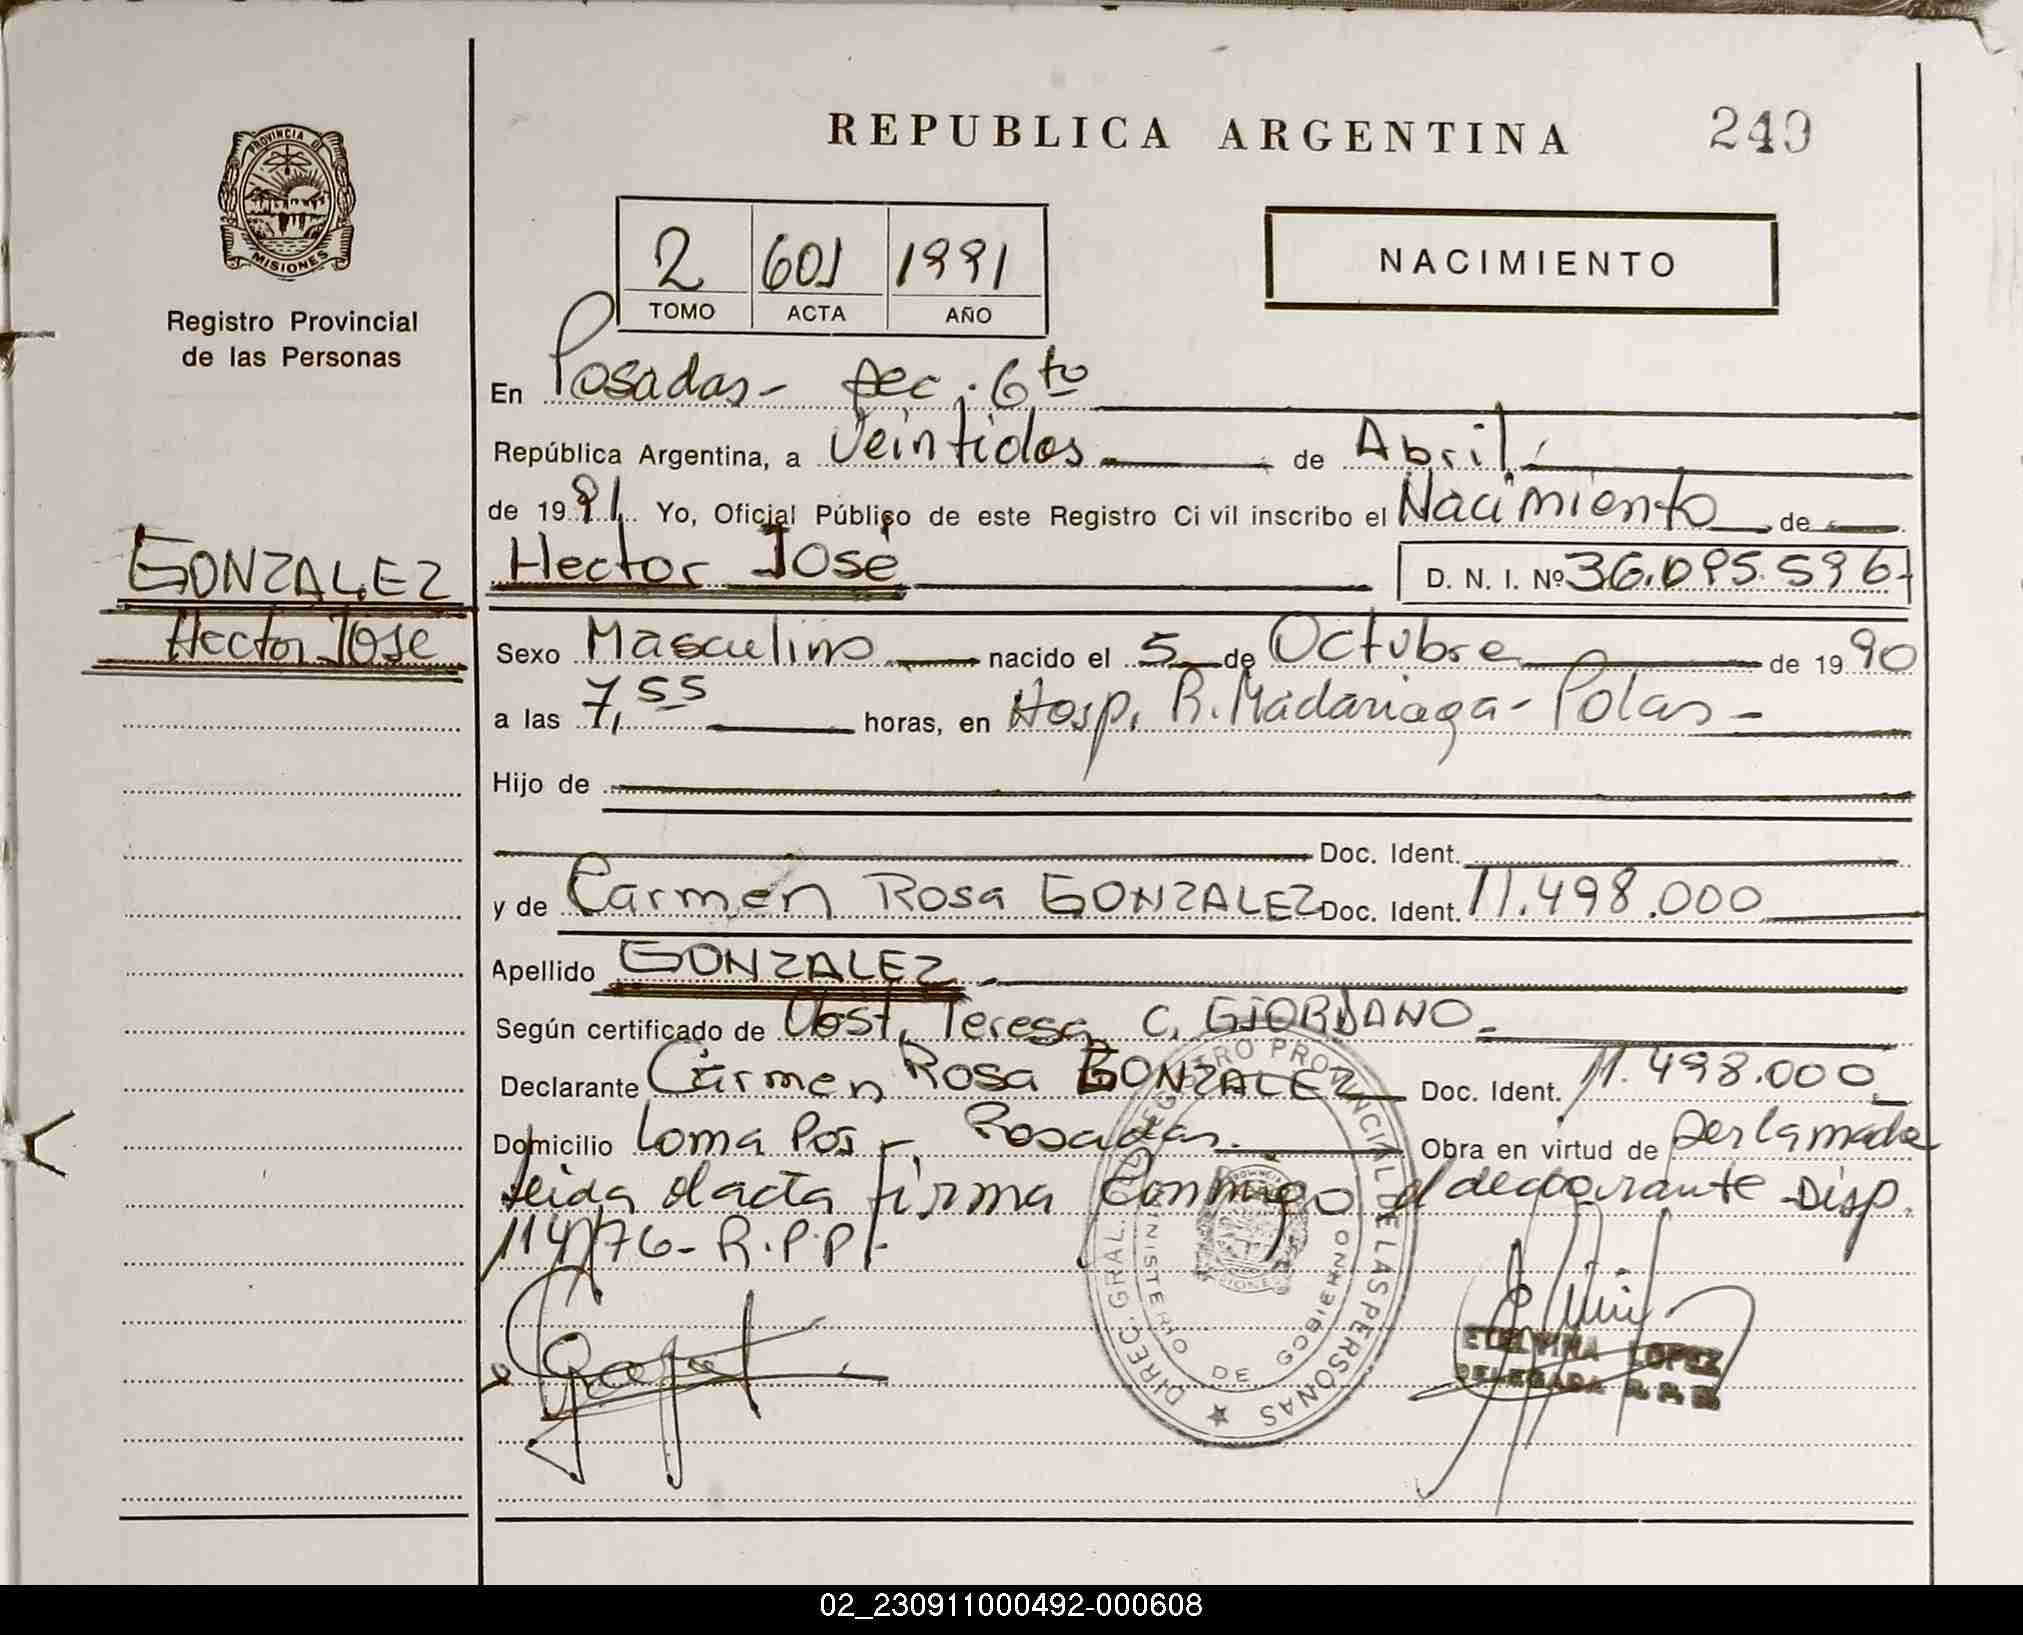 REPUBLICA ARGENTINA
249
PROVINCIA DE
MISIONES
Registro Provincial
de las Personas
2 601 1991
TOMO ACTA AÑO
NACIMIENTO
En Posadas - Sec. 6to
República Argentina, a Veintidos de Abril
de 1991. Yo, Oficial Público de este Registro Civil inscribo el Nacimiento de
GONZALEZ
Hector Jose
Hector José D. N. I. Nº 36.095.596-
Sexo Masculino nacido el 5 de Octubre de 1990
a las 7,55 horas, en Hosp. R. Madariaga - Pdas -
Hijo de
Doc. Ident.
y de Carmen Rosa GONZALEZ Doc. Ident. 11.498.000
Apellido GONZALEZ.
Según certificado de Obst. Teresa C. GIORDANO.-
Declarante Carmen Rosa GONZALEZ Doc. Ident. 11.498.000.
Domicilio Loma Pos - Posadas. Obra en virtud de ser la madre
Leida el acta firma conmigo el declarante Disp.
114/76- R.P.P.-
DIREC. GRAL. REGISTRO PROVINCIAL DE LAS PERSONAS
MINISTERIO DE GOBIERNO
MISIONES
ETELVINA LOPEZ
DELEGADA R. P. P.
02_230911000492-000608